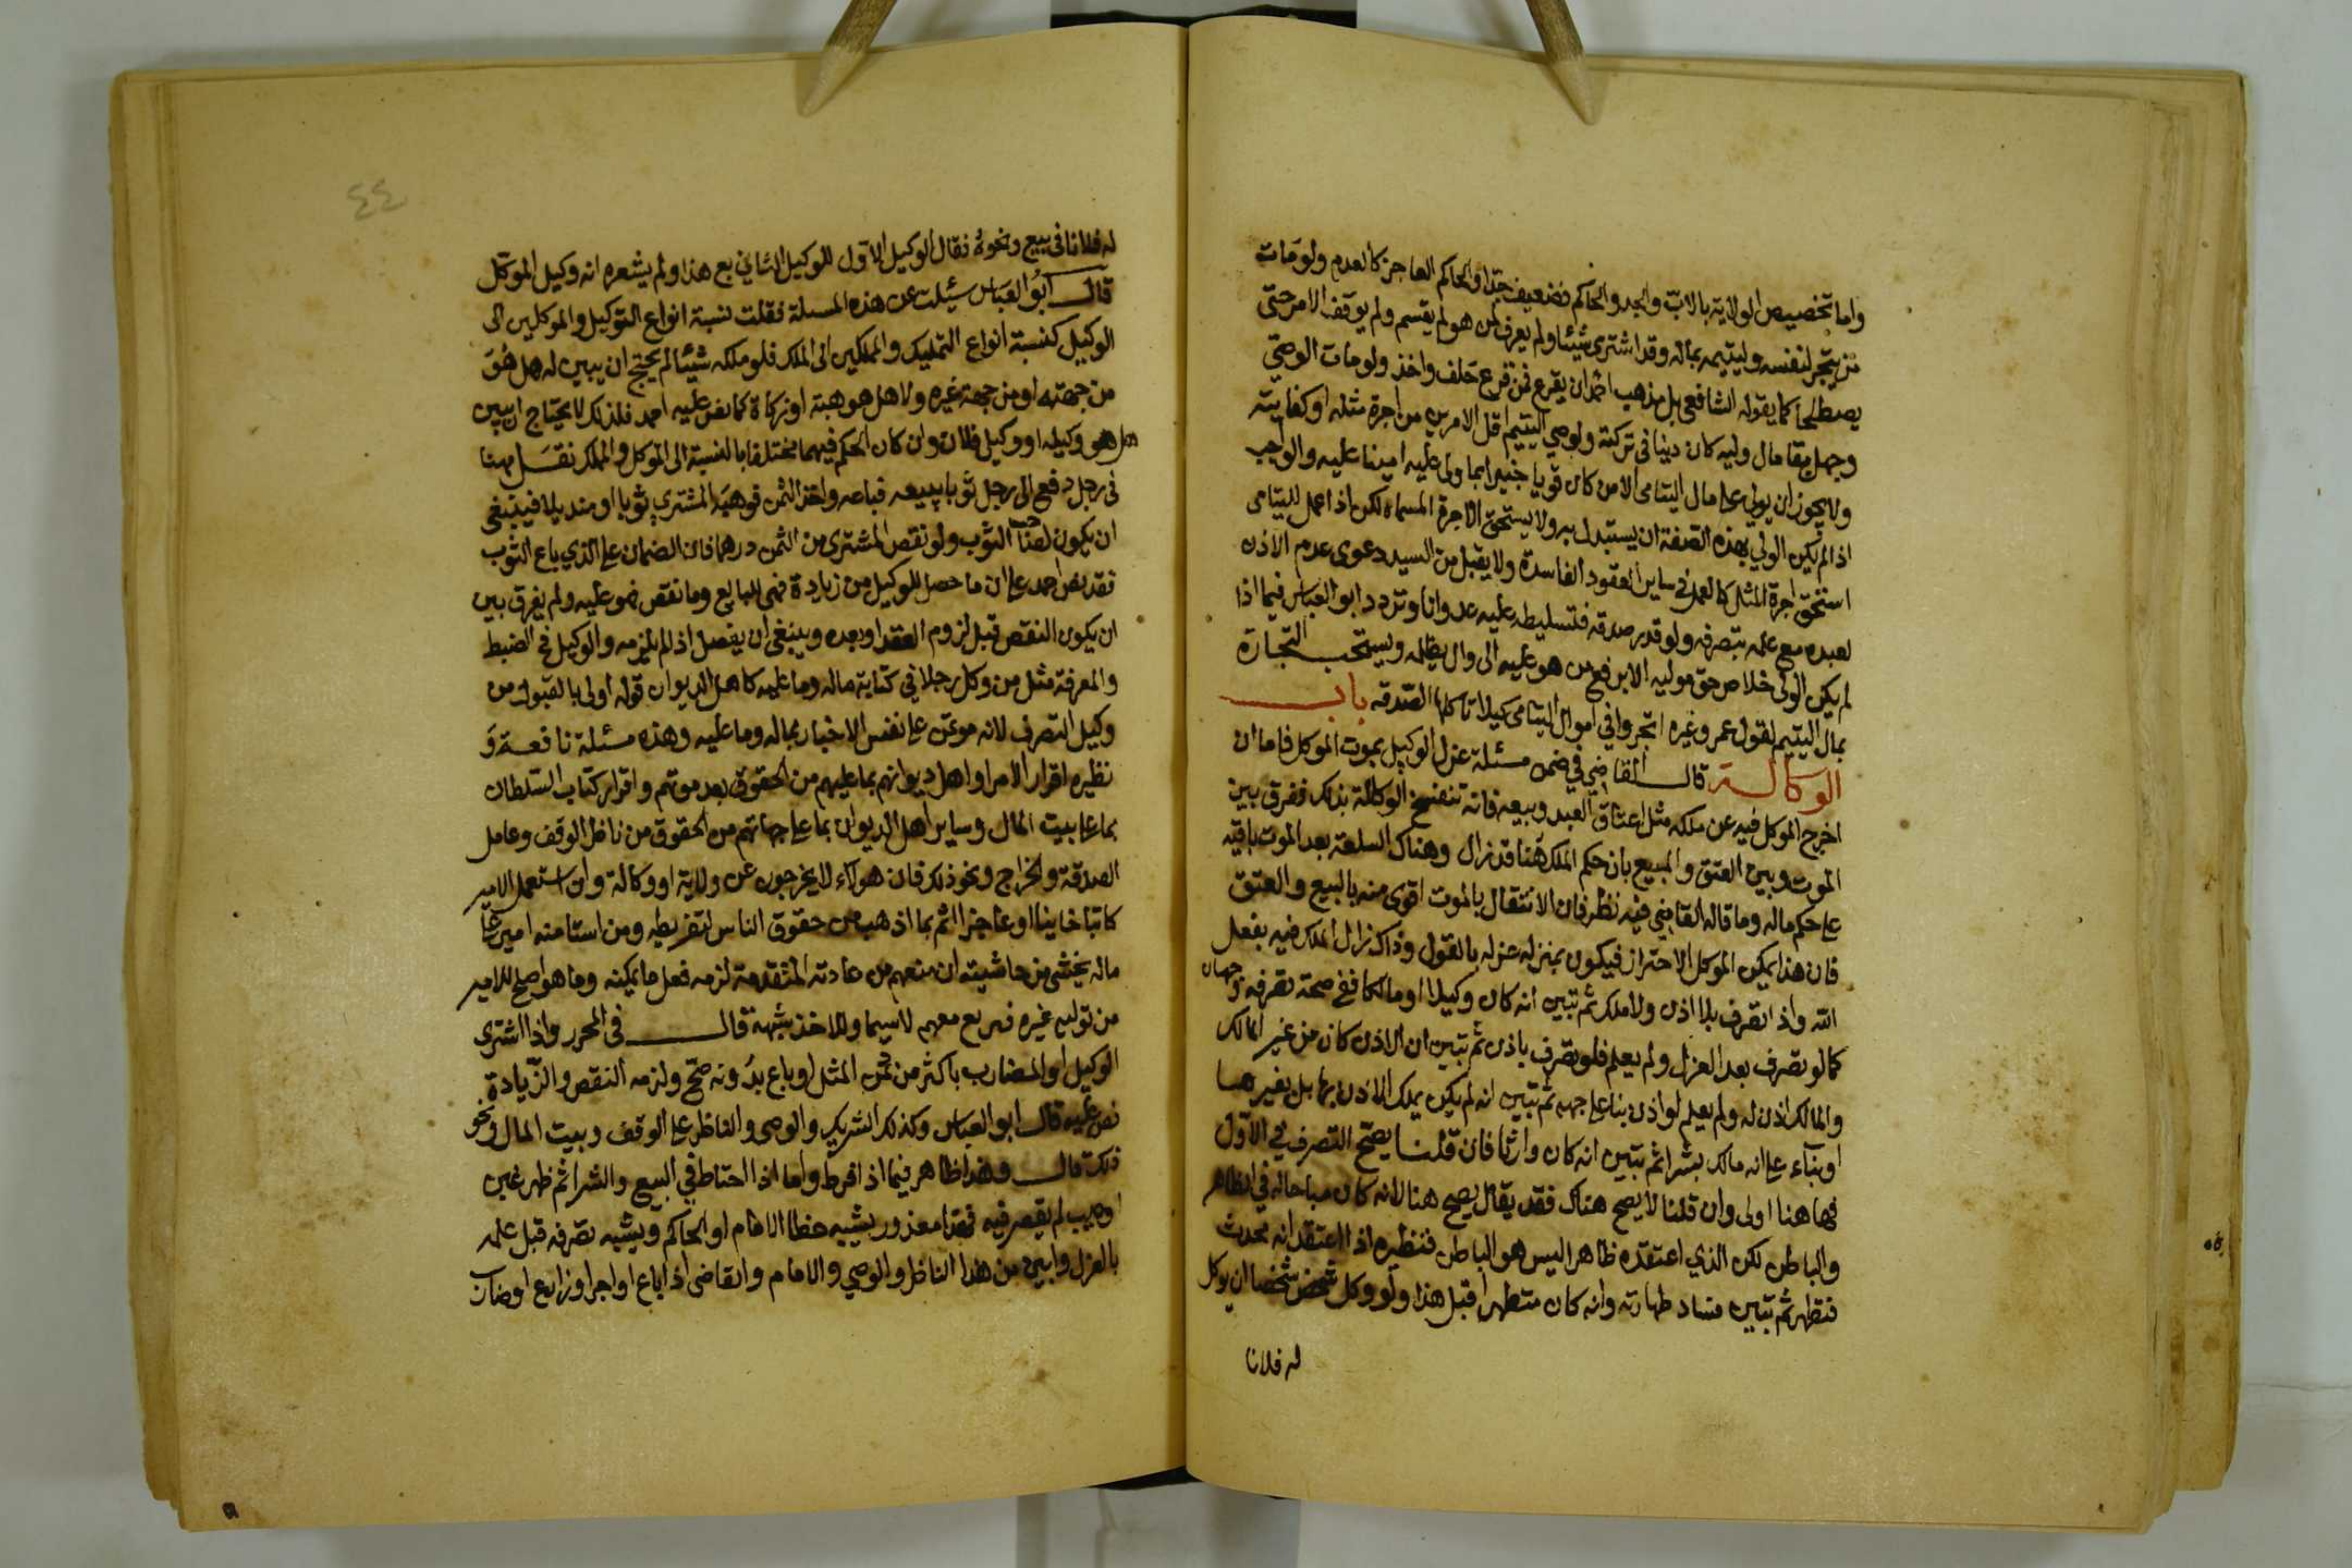 واما تخصيص الولاية بالاب والجد والحاكم فضعيف جدا والحاكم العاجز كالعدم ولو مات
من يتجر لنفسه وليتيمه بماله وقد اشترى شيئا ولم يعرف لمن هو لم يقسم ولم يوقف الامر حتى
يصطلحا كما يقوله الشافعي بل مذهب احمد ان يقرع فمن قرع حلف واخذ ولو مات الوصي
وجهل بقا مال وليه كان دينا في تركته ولوصي اليتيم اقل الامرين من اجرة مثله او كفايته
ولا يجوز ان يولي على مال اليتامى الا من كان قويا خبيرا بما ولى عليه امينا عليه والواجب
اذا لم يكن الولي بهذه الصفة ان يستبدل به ولا يستحق الاجرة المسماة لكن اذا عمل لليتامى
استحق اجرة المثل كالعمل في ساير العقود الفاسدة ولا يقبل من السيد دعوى عدم الاذن
لعبده مع علمه بتصرفه ولو قدر صدقه فتسليطه عليه عدوانا وتردد ابو العباس فيما اذا
لم يكن الولي خلاص حق موليه الا برفع من هو عليه الى وال يظلمه ويستحب التجارة
بمال اليتيم لقول عمر وغيره اتجروا في اموال اليتامى كيلا تاكلها الصدقه باب
الوكالة قال القاضي في ضمن مسئلة عزل الوكيل بموت الموكل فاما ان
اخرج الموكل فيه عن ملكه مثل اعتاق العبد وبيعه فانه تنفسخ الوكالة بذلك ففرق بين
الموت وبين العتق والمبيع بان حكم الملك هنا قد زال وهناك السلعة بعد الموت باقيه
على حكم ماله وما قاله القاضي فيه نظر فان الانتقال بالموت اقوى منه بالبيع والعتق
فان هذا يمكن الموكل الاحتراز فيكون بمنزله عزله بالقول وذاك زال الملك فيه بفعل
الله واذا تصرف بلا اذن ولا ملك ثم تبين انه كان وكيلا او مالكا ففي صحة تصرفه وجهان
كما لو تصرف بعد العزل ولم يعلم فلو تصرف باذن ثم تبين ان الاذن كان من غير المالك
والمالك اذن له ولم يعلم لو اذن بناء على جهه ثم تبين انه لم يكن يملك الاذن بها بل بغيرها
او بناء على انه مالك بشرا ثم تبين انه كان وارثا فان قلنا يصح التصرف في الاول
فهاهنا اولى وان قلنا لا يصح هناك فقد يقال يصح هنا لانه كان مباحا له في الظاهر
والباطن لكن الذي اعتقده ظاهرا ليس هو الباطن فنظيره اذا اعتقد انه محدث
فتطهر ثم تبين فساد طهارته وانه كان متطهرا قبل هذا ولو وكل شخص شخصا ان يوكل
له فلانا
٤٤
له فلانا في بيع ونحوه فقال الوكيل الاول للوكيل الثاني بع هذا ولم يشعره انه وكيل الموكل
قال ابو العباس سئلت عن هذه المسئلة فقلت نسبة انواع التوكيل والموكلين الى
الوكيل كنسبة انواع التمليك والمملكين الى الملك فلو ملكه شيئا لم يحتج ان يبين له هل هو
من جهته او من جهة غيره ولا هل هو هبة او زكاة كما نص عليه احمد فلذلك لا يحتاج ان يبين
هل هو وكيله او وكيل فلان وان كان الحكم فيهما مختلفا بالنسبة الى الموكل والمملك نقل مهنا
في رجل دفع الى رجل ثوبا يبيعه فباعه واخذ الثمن فوهبه المشتري ثوبا او منديلا فينبغي
ان يكون لصاحب الثوب ولو نقص المشتري من الثمن درهما فان الضمان على الذي باع الثوب
فقد نص احمد على ان ما حصل للوكيل من زيادة فهي للبايع وما نقص فهو عليه ولم يفرق بين
ان يكون النقص قبل لزوم العقد او بعده وينبغي ان يفصل اذا لم يلزمه والوكيل في الضبط
والمعرفة مثل من وكل رجلا في كتابة ماله وما عليه كاهل الديوان قوله اولى بالقبول من
وكيل التصرف لانه موتمن على نفس الاخبار بماله وما عليه وهذه مسئلة نافعة و
نظيره اقرار الامرا واهل ديوانهم بما عليهم من الحقوق بعد موتهم واقرار كتاب السلطان
بما على بيت المال وساير اهل الديوان بما على جهاتهم من الحقوق من ناظر الوقف وعامل
الصدقة والخراج ونحو ذلك فان هولاء لا يخرجون عن ولاية او وكالة وان استعمل الامير
كاتبا خاينا او عاجزا اثم بما اذهب من حقوق الناس لتفريطه ومن استامنه امير على
ماله يخشى من حاشيته ان منعهم من عادته المتقدمة لزمه فعل ما يمكنه وما هو اصلح للامير
من تولي غيره فيرتع معهم لاسيما وللاخذ شبهة قال في المحرر واذا اشترى
الوكيل او المضارب باكثر من ثمن المثل او باع بدونه صح ولزمه النقص والزيادة
نص عليه قال ابو العباس وكذلك الشريك والوصي والناظر على الوقف وبيت المال ونحو
ذلك قال وهذا ظاهر فيما اذا فرط واما اذا احتاط في البيع والشرا ثم ظهر غبن
او عيب لم يقصر فيه فهذا معذور يشبه خطا الامام او الحاكم ويشبه تصرفه قبل علمه
بالعزل وابين من هذا الناظر والوصي والامام والقاضي اذا باع او اجر او زارع او ضارب